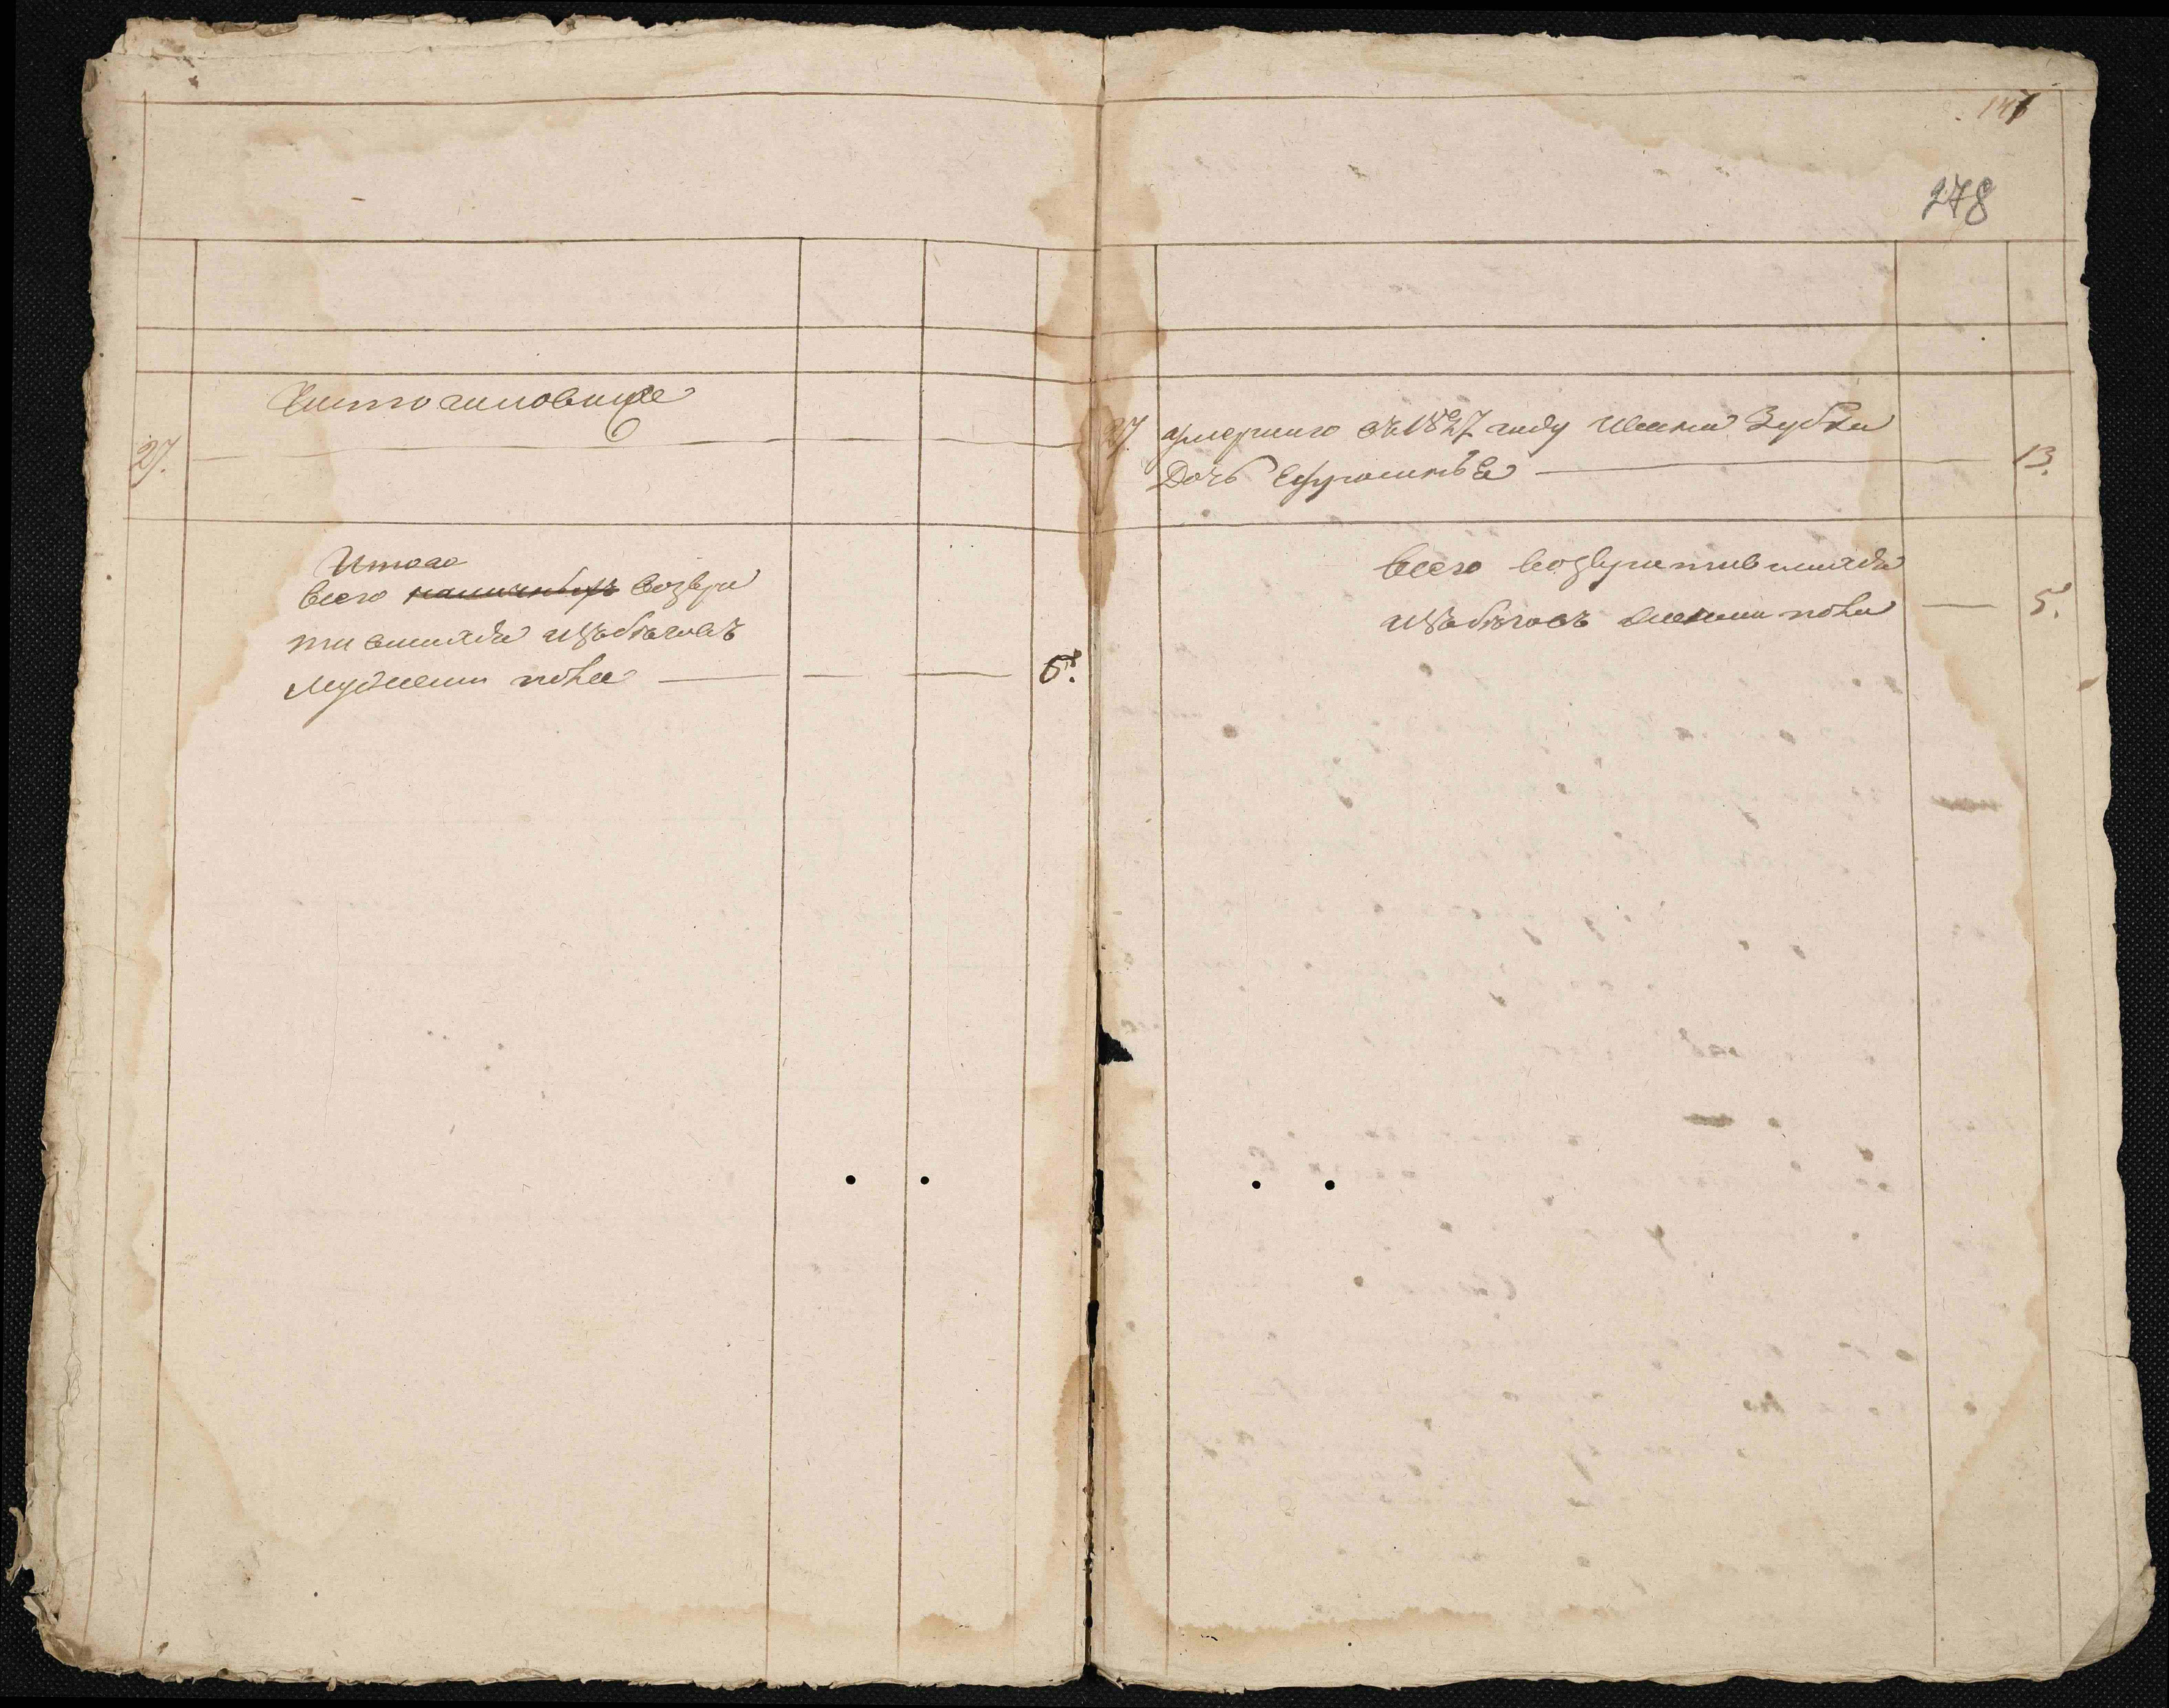 147
278
27.
27. умершаго въ 1827 году Ивана Зубка
Дочь Ефросинья 13.
Итого
всего наличныхъ возвра
тившихся изъ бѣговъ
мужеска пола 6.
всего возвратившихся
изъ бѣговъ женска пола 5.